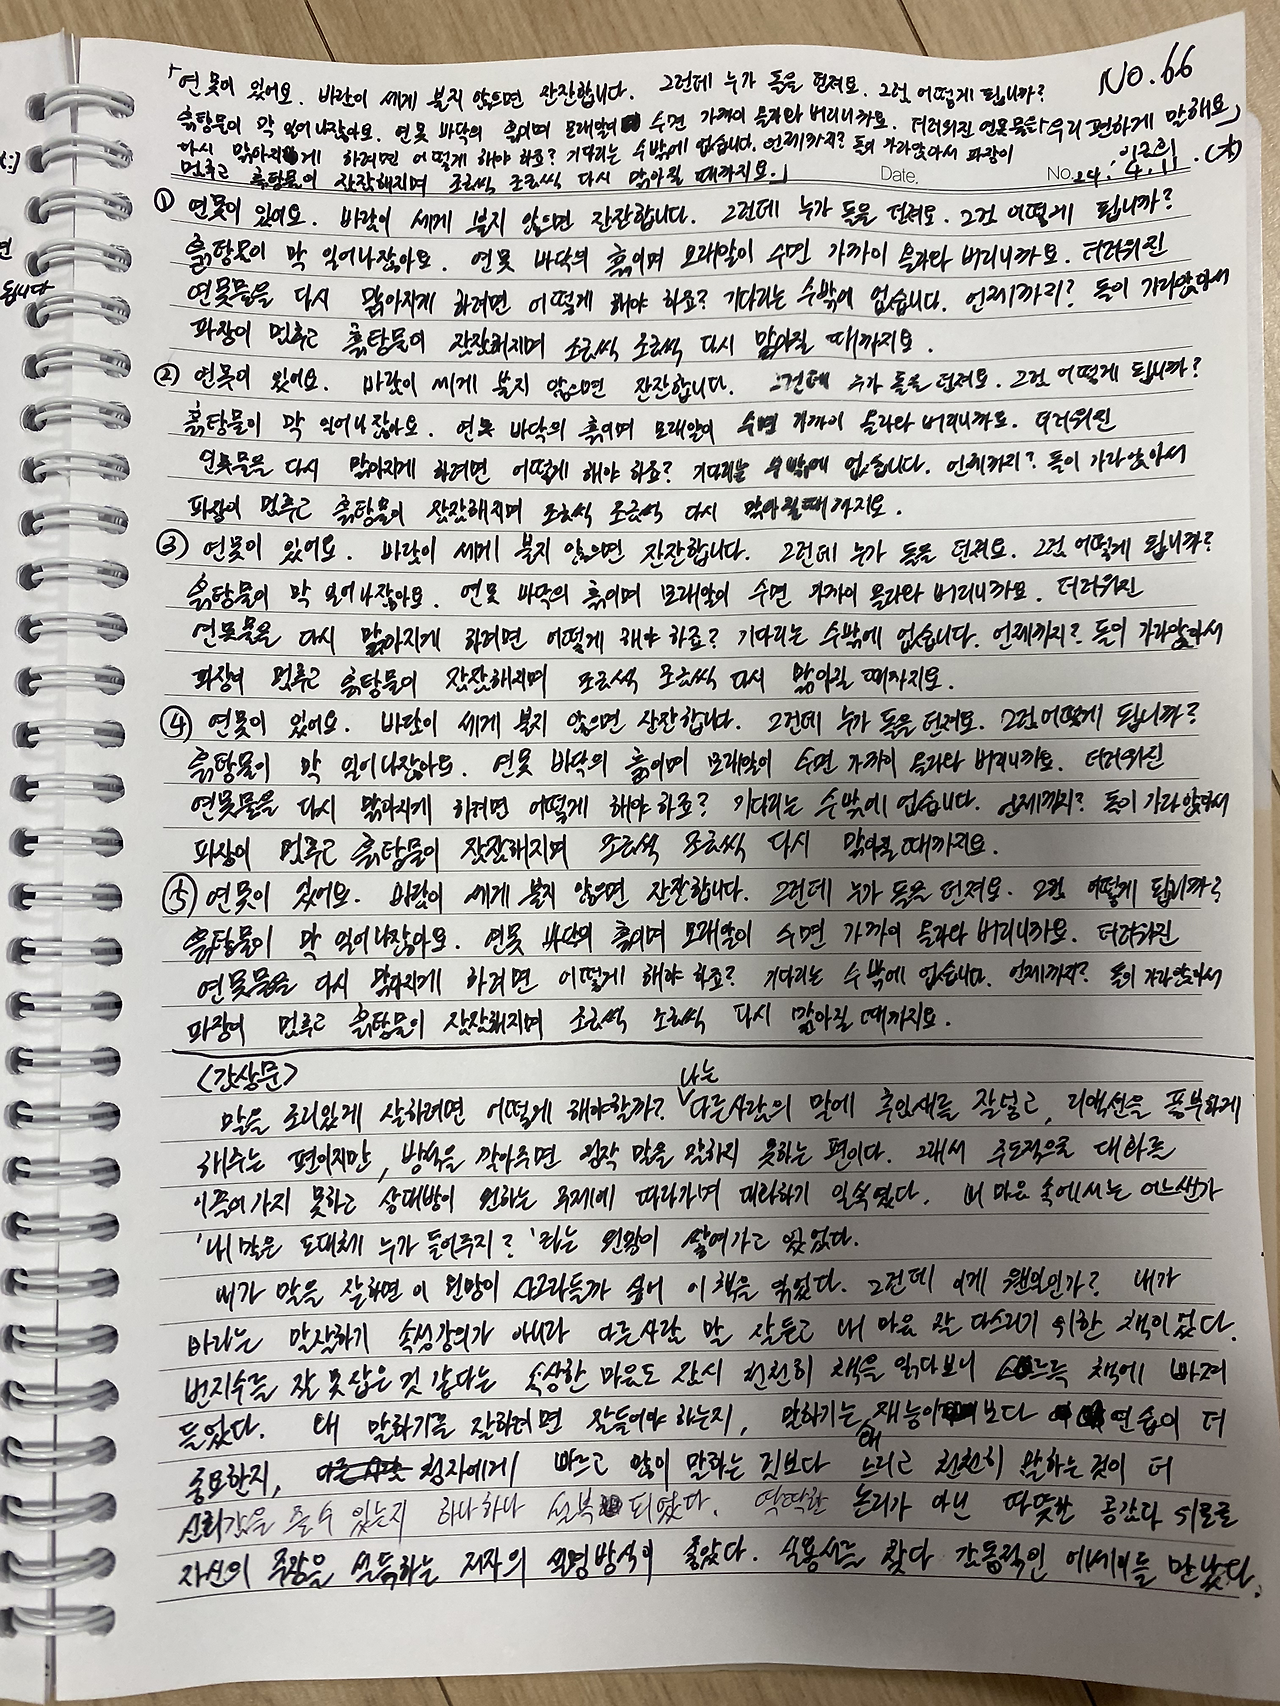 No.66
「연못이 있어요. 바람이 세게 불지 않으면 잔잔합니다. 그런데 누가 돌을 던져요. 그럼 어떻게 됩니까?
흙탕물이 막 일어나잖아요. 연못 바닥의 흙이며 모래알이 수면 가까이 올라와 버리니까요. 더러워진 연못물을
다시 맑아지게 하려면 어떻게 해야 하죠? 기다리는 수밖에 없습니다. 언제까지? 돌이 가라앉아서 파장이
멈추고 흙탕물이 잔잔해지며 조금씩 조금씩 다시 맑아질 때까지요.」
우리 편하게 말해요」
Date. No. 24. 4. 11. (木)
① 연못이 있어요. 바람이 세게 불지 않으면 잔잔합니다. 그런데 누가 돌을 던져요. 그럼 어떻게 됩니까?
흙탕물이 막 일어나잖아요. 연못 바닥의 흙이며 모래알이 수면 가까이 올라와 버리니까요. 더러워진
연못물을 다시 맑아지게 하려면 어떻게 해야 하죠? 기다리는 수밖에 없습니다. 언제까지? 돌이 가라앉아서
파장이 멈추고 흙탕물이 잔잔해지며 조금씩 조금씩 다시 맑아질 때까지요.
② 연못이 있어요. 바람이 세게 불지 않으면 잔잔합니다. 그런데 누가 돌을 던져요. 그럼 어떻게 됩니까?
흙탕물이 막 일어나잖아요. 연못 바닥의 흙이며 모래알이 수면 가까이 올라와 버리니까요. 더러워진
연못물을 다시 맑아지게 하려면 어떻게 해야 하죠? 기다리는 수밖에 없습니다. 언제까지? 돌이 가라앉아서
파장이 멈추고 흙탕물이 잔잔해지며 조금씩 조금씩 다시 맑아질 때까지요.
③ 연못이 있어요. 바람이 세게 불지 않으면 잔잔합니다. 그런데 누가 돌을 던져요. 그럼 어떻게 됩니까?
흙탕물이 막 일어나잖아요. 연못 바닥의 흙이며 모래알이 수면 가까이 올라와 버리니까요. 더러워진
연못물을 다시 맑아지게 하려면 어떻게 해야 하죠? 기다리는 수밖에 없습니다. 언제까지? 돌이 가라앉아서
파장이 멈추고 흙탕물이 잔잔해지며 조금씩 조금씩 다시 맑아질 때까지요.
④ 연못이 있어요. 바람이 세게 불지 않으면 잔잔합니다. 그런데 누가 돌을 던져요. 그럼 어떻게 됩니까?
흙탕물이 막 일어나잖아요. 연못 바닥의 흙이며 모래알이 수면 가까이 올라와 버리니까요. 더러워진
연못물을 다시 맑아지게 하려면 어떻게 해야 하죠? 기다리는 수밖에 없습니다. 언제까지? 돌이 가라앉아서
파장이 멈추고 흙탕물이 잔잔해지며 조금씩 조금씩 다시 맑아질 때까지요.
⑤ 연못이 있어요. 바람이 세게 불지 않으면 잔잔합니다. 그런데 누가 돌을 던져요. 그럼 어떻게 됩니까?
흙탕물이 막 일어나잖아요. 연못 바닥의 흙이며 모래알이 수면 가까이 올라와 버리니까요. 더러워진
연못물을 다시 맑아지게 하려면 어떻게 해야 하죠? 기다리는 수밖에 없습니다. 언제까지? 돌이 가라앉아서
파장이 멈추고 흙탕물이 잔잔해지며 조금씩 조금씩 다시 맑아질 때까지요.
<감상문>
말을 조리있게 잘하려면 어떻게 해야할까? 나는 다른사람의 말에 추임새를 잘넣고, 리액션을 풍부하게
해주는 편이지만, 방석을 깔아주면 정작 말을 말하지 못하는 편이다. 그래서 주도적으로 대화를
이끌어가지 못하고 상대방이 원하는 주제에 따라가며 대화하기 일쑤였다. 내 마음 속에서는 어느샌가
'내 말은 도대체 누가 들어주지?'라는 원망이 쌓여가고 있었다.
내가 말을 잘하면 이 원망이 사그라들까 싶어 이 책을 읽었다. 그런데 이게 웬일인가? 내가
바라는 말잘하기 속성강의가 아니라 다른사람 말 잘듣고 내 마음 잘 다스리기 위한 책이었다.
번지수를 잘 못 잡은 것 같다는 속상한 마음도 잠시 천천히 책을 읽다보니 스르륵 책에 빠져
들었다. 왜 말하기를 잘하려면 잘들어야 하는지, 말하기는 왜 재능보다 연습이 더
중요한지, 청자에게 빠르고 많이 말하는 것보다 느리고 천천히 말하는 것이 더
신뢰감을 줄 수 있는지 하나하나 설복되었다. 딱딱한 논리가 아닌 따뜻한 공감과 위로로
자신의 주장을 설득하는 저자의 설명방식이 좋았다. 실용서를 찾다 감동적인 에세이를 만났다.